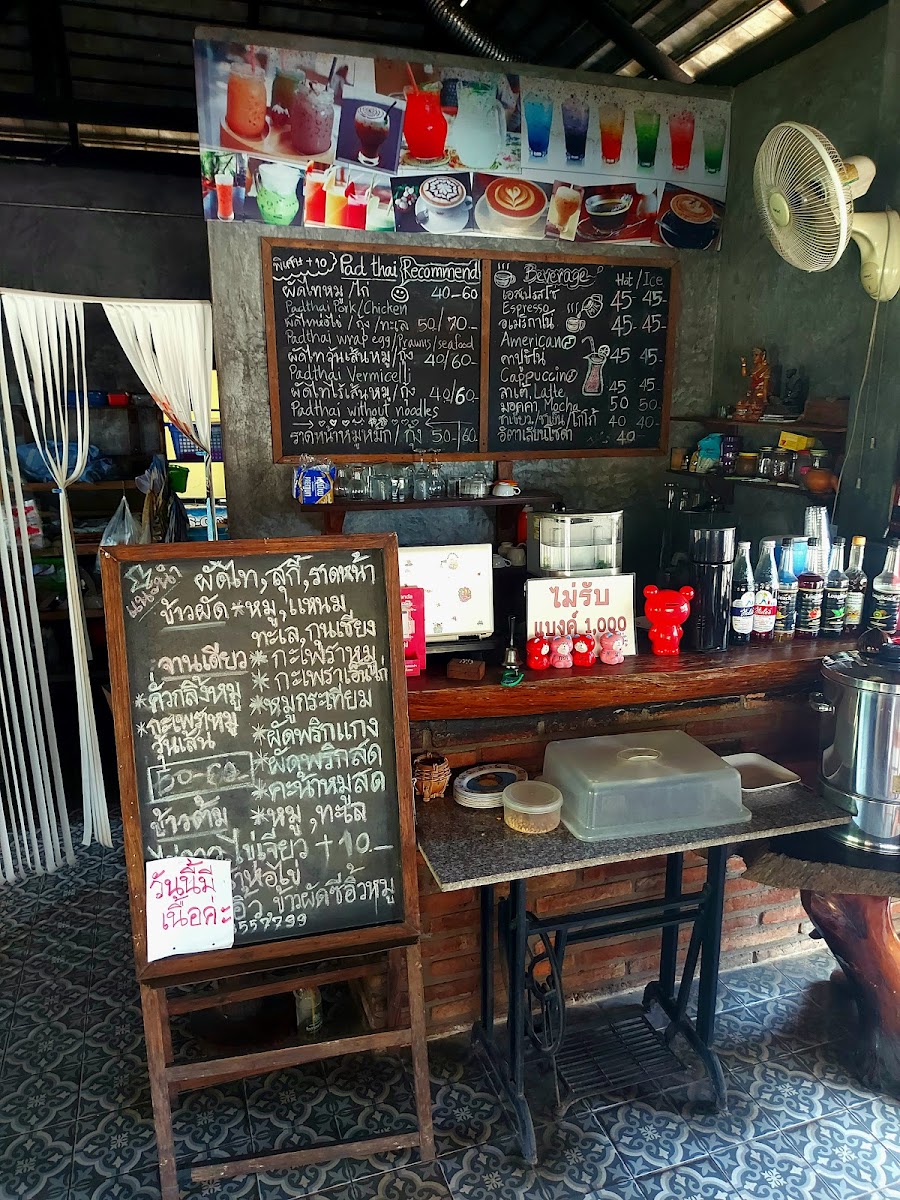 พิเศษ +10 Pad thai Recommend
ผัดไทหมู/ไก่ 40-60
Padthai Pork/Chicken
ผัดไทห่อไข่/กุ้ง/ทะเล 50/70-
Padthai wrap egg/Prawns/seafood
ผัดไทวุ้นเส้นหมู/กุ้ง 40/60-
Padthai Vermicelli
ผัดไทไร้เส้นหมู/กุ้ง 40/60-
Padthai without noodles
ราดหน้าหมูหมัก/กุ้ง 50-60
Beverage Hot/Ice
เอสเปรสโซ่ 45- 45-
Espresso
อเมริกาโน่ 45- 45-
American
คาปูชิโน่ 45 45-
Cappuccino
ลาเต้, Latte 45 45-
มอคคา Moche 50 50-
ชาเขียว/ชาเย็น/โกโก้ 40 40-
อิตาเลี่ยนโซดา 40
แนะนำ ผัดไท, สุกี้, ราดหน้า
ข้าวผัด * หมู, แหนม
ทะเล, กุนเชียง
จานเดียว * กะเพราหมู
* คั่วกลิ้งหมู * กะเพรา
* หมูกระเทียม
* กะเพราหมู
วุ้นเส้น * ผัดพริกแกง
50-60 * ผัดพริกสด
* คะน้าหมูสด
ข้าวต้ม * หมู, ทะเล
ไข่เจียว +10.-
ห่อไข่
ข้าวผัดซีอิ้วหมู
557799
วันนี้มี
เนื้อค่ะ
ไม่รับ
แบงค์ 1,000